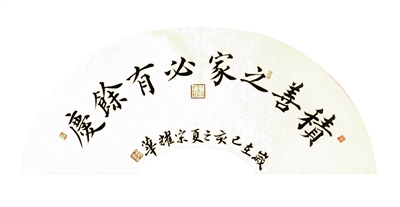 積善之家必有餘慶
歲在己亥之夏宗耀華